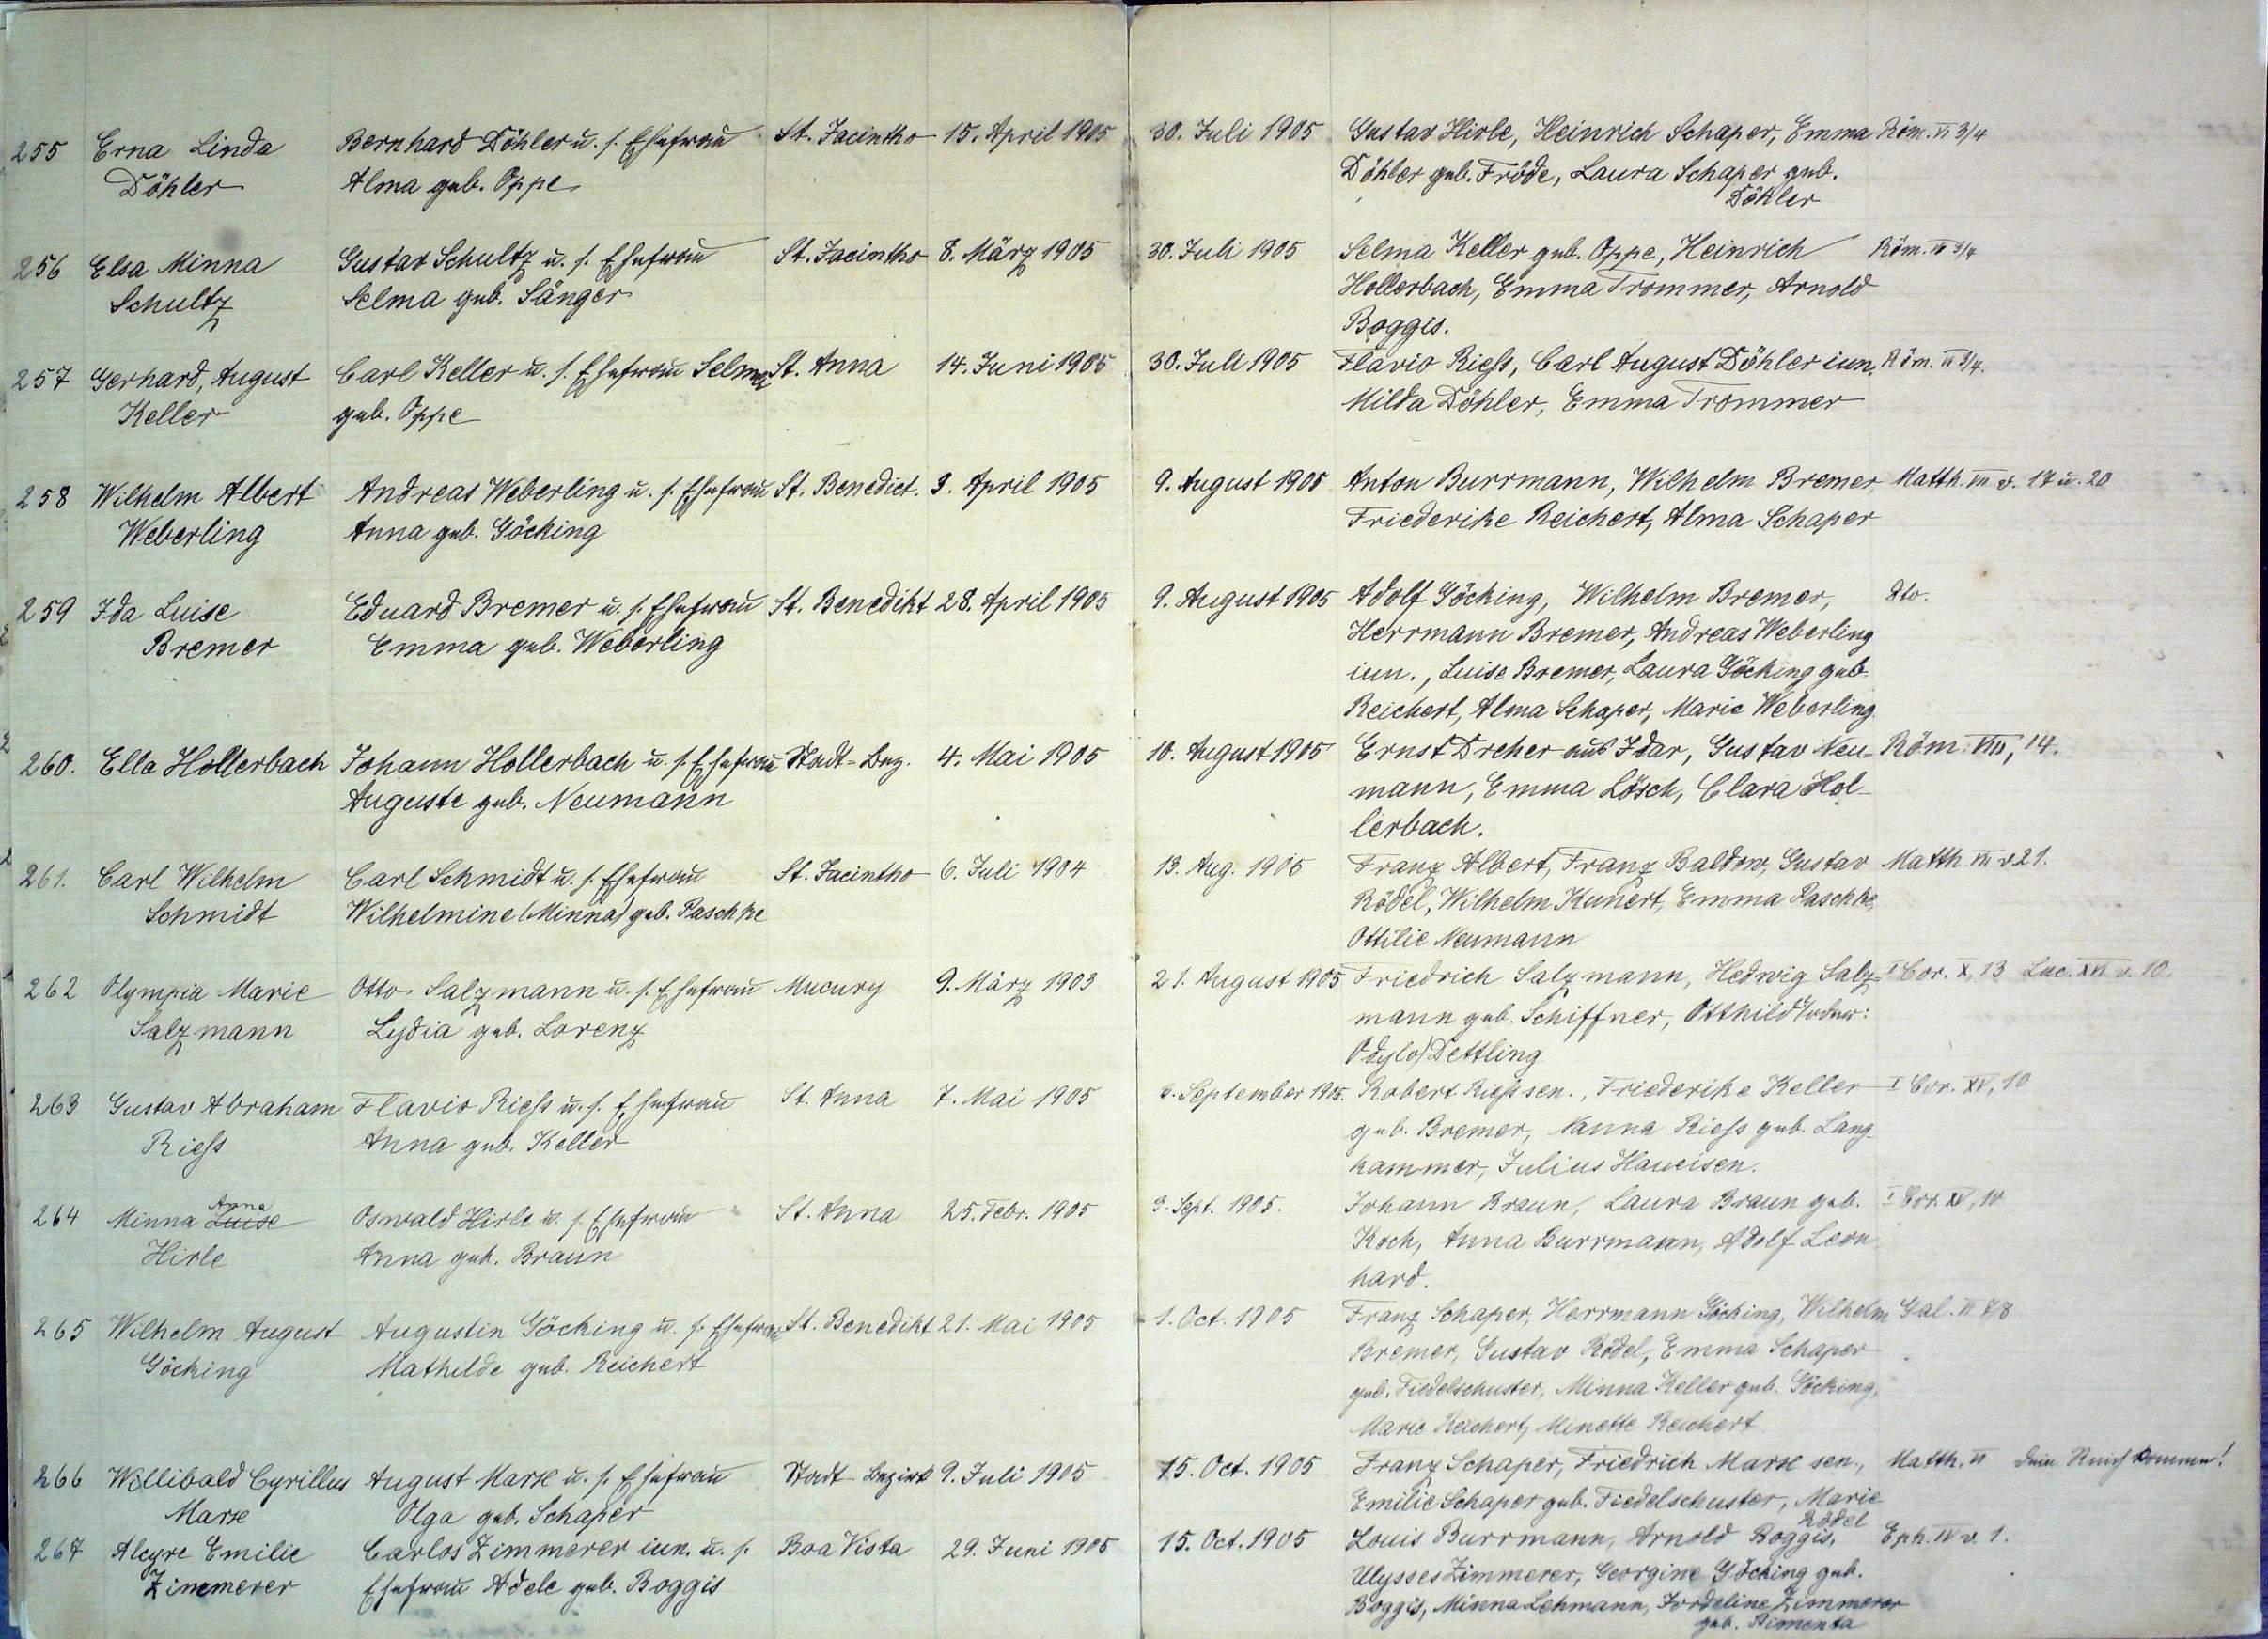 255 Erna Linda Bernhard Döhler u. s. Ehefrau St. Jacintho 15. April 1905 30. Juli 1905 Gustav Hirle, Heinrich Schaper, Emma Röm. VI 3/4
Döhler Alma geb. Oppe Döhler geb. Frode, Laura Schaper geb.
Döhler
256 Elsa Minna Gustav Schultz u. s. Ehefrau St. Jacintho 8. März 1905 30. Juli 1905 Selma Keller geb. Oppe, Heinrich Röm. VI 3/4
Schultz Selma geb. Sänger Hollerbach, Emma Trommer, Arnold
Boggis.
257 Gerhard, August Carl Keller u. s. Ehefrau Selma St. Anna 14. Juni 1905 30. Juli 1905 Flavio Rieß, Carl August Döhler iun. Röm. VI 3/4.
Keller geb. Oppe Milda Döhler, Emma Trommer
258 Wilhelm Albert Andreas Weberling u. s. Ehefrau St. Benedict. 3. April 1905 9. August 1905 Anton Burrmann, Wilhelm Bremer Matth. VII v. 17 u. 20
Weberling Anna geb. Göcking Friederike Reichert, Alma Schaper
259 Ida Luise Eduard Bremer u. s. Ehefrau St. Benedikt 28. April 1905 9. August 1905 Adolf Göcking, Wilhelm Bremer, dto.
Bremer Emma geb. Weberling Herrmann Bremer, Andreas Weberling
iun., Luise Bremer, Laura Göcking geb.
Reichert, Alma Schaper, Marie Weberling
260. Ella Hollerbach Johann Hollerbach u. s. Ehefrau Stadt-Bez. 4. Mai 1905 10. August 1905 Ernst Dreher aus Idar, Gustav Neu- Röm. VIII, 14.
Auguste geb. Neumann mann, Emma Lösch, Clara Hol-
lerbach.
261. Carl Wilhelm Carl Schmidt u. s. Ehefrau St. Jacintho 6. Juli 1904 13. Aug. 1905 Franz Albert, Franz Baldow, Gustav Matth. VII v 21.
Schmidt Wilhelmine (Minna) geb. Paschke Rödel, Wilhelm Kunert, Emma Paschke,
Ottilie Neumann
262 Olympia Marie Otto Salzmann u. s. Ehefrau Mucury 9. März 1903 21. August 1905 Friedrich Salzmann, Hedwig Salz- I Cor. X, 13 Luc. XVI v. 10.
Salzmann Lydia geb. Lorenz mann geb. Schiffner, Otthild (oder:
Odylo) Dettling
263 Gustav Abraham Flavio Rieß u. s. Ehefrau St. Anna 7. Mai 1905 3. September 1905. Robert Rieß sen., Friederike Keller I Cor. XV, 10
Rieß Anna geb. Keller geb. Bremer, Nanna Rieß geb. Lang-
hammer, Julius Haueisen.
Anna
264 Minna Luise Oswald Hirle u. s. Ehefrau St. Anna 25. Febr. 1905 3. Sept. 1905. Johann Braun, Laura Braun geb. I Cor. XV, 10
Hirle Anna geb. Braun Koch, Anna Burrmann, Adolf Leon-
hard.
265 Wilhelm August Augustin Göcking u. s. Ehefrau St. Benedikt 21. Mai 1905 1. Oct. 1905 Franz Schaper, Herrmann Göcking, Wilhelm Gal. VI 7/8
Göcking Mathilde geb. Reichert Bremer, Gustav Rödel, Emma Schaper
geb. Fiedelschuster, Minna Keller geb. Göcking,
Marie Reichert, Minette Reichert
266 Willibald Cyrillus August Marx u. s. Ehefrau Stadt-Bezirk 9. Juli 1905 15. Oct. 1905 Franz Schaper, Friedrich Marx sen., Matth. VI Dein Reich komme!
Marx Olga geb. Schaper Emilie Schaper geb. Fiedelschuster, Marie
Rödel
267 Alcyre Emilie Carlos Zimmerer iun. u. s. Boa Vista 29. Juni 1905 15. Oct. 1905 Louis Burrmann, Arnold Boggis, Eph. IV v. 1.
Zimmerer Ehefrau Adele geb. Boggis Ulysses Zimmerer, Georgine Göcking geb.
Boggis, Minna Lehmann, Jordeline Zimmerer
geb. Pimenta